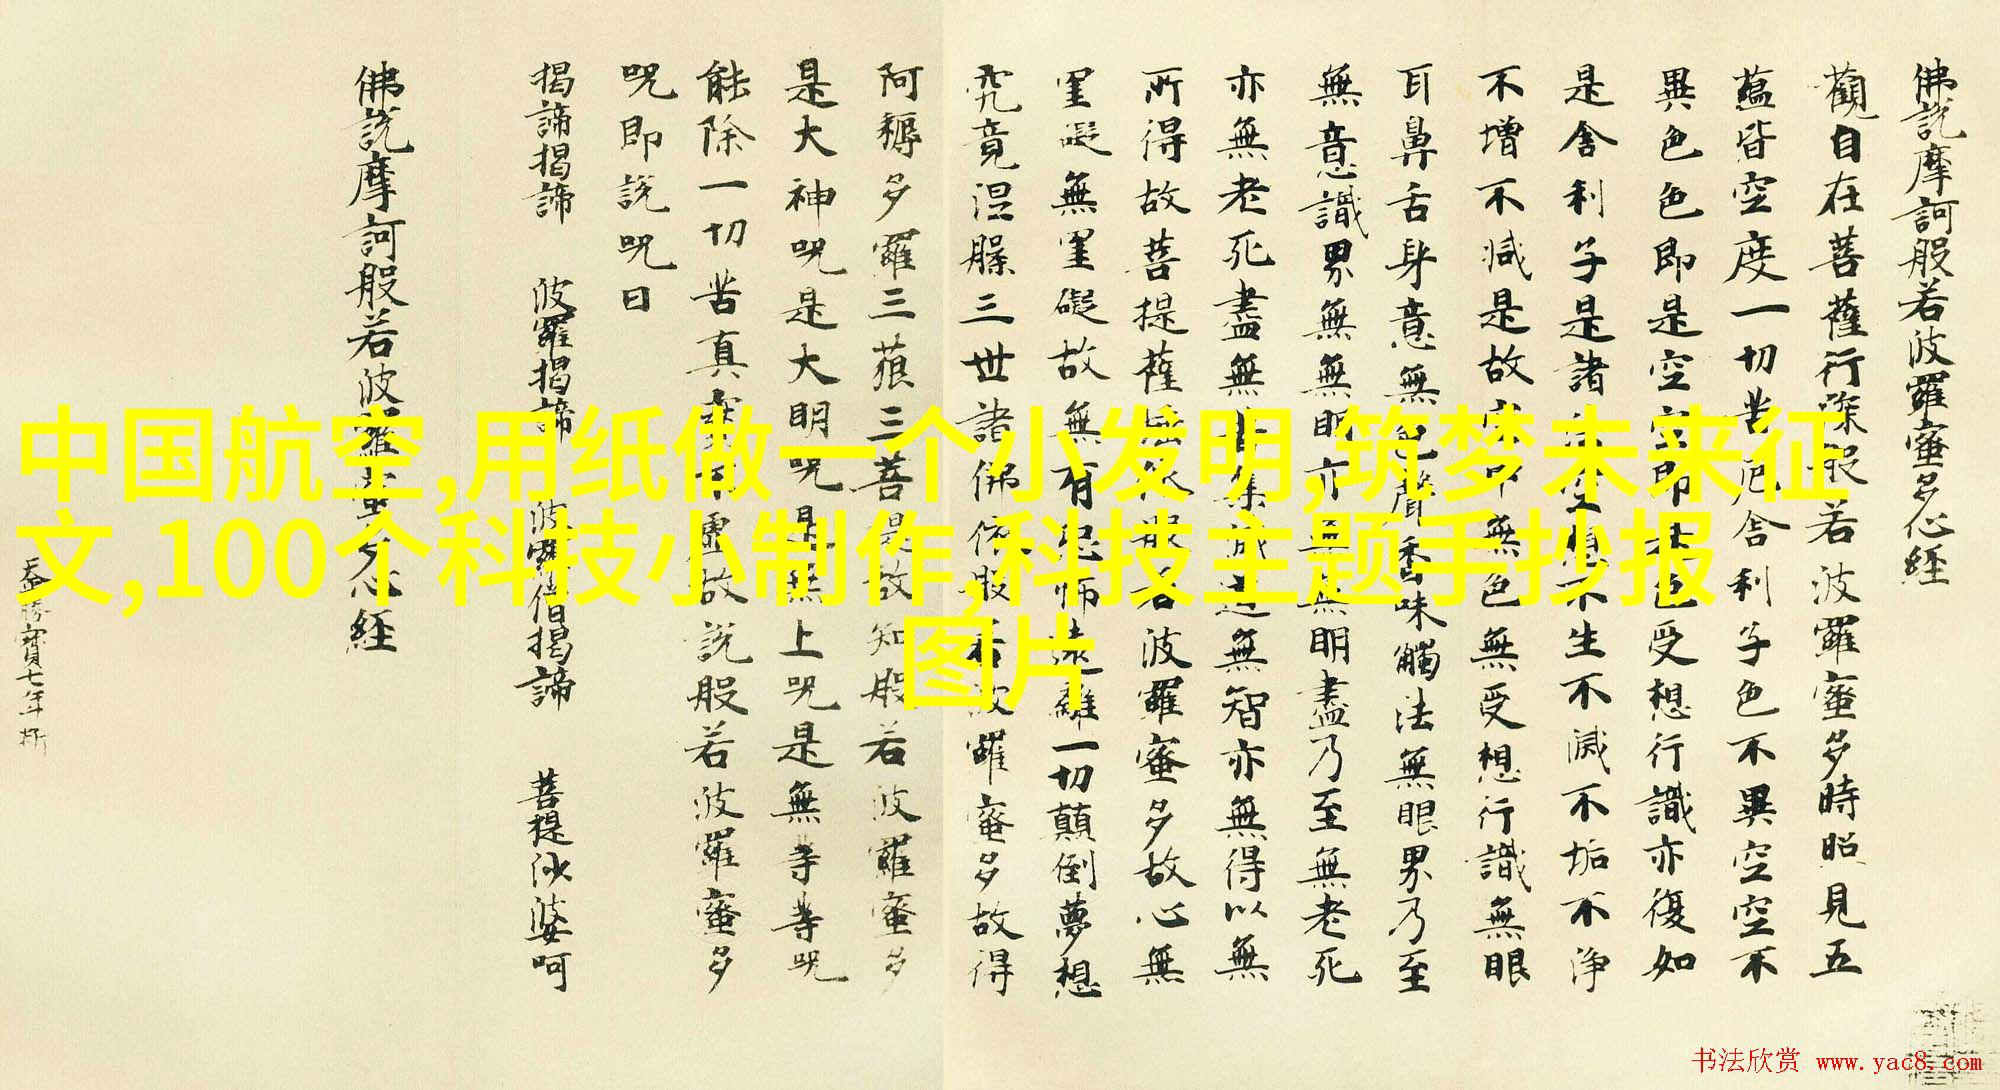 佛說摩訶般若波羅蜜多心経
觀自在菩薩行深般若波羅蜜多時照見五
蘊皆空度一切苦厄舍利子色不異空空不
異色色即是空空即是色受想行識亦復如
是舍利子是諸法空相不生不滅不垢不淨
不增不減是故空中無色無受想行識無眼
耳鼻舌身意無色聲香味觸法無眼界乃至
無意識界無無明亦無無明盡乃至無老死
亦無老死盡無苦集滅道無智亦無得以無
所得故菩提薩埵依般若波羅蜜多故心無
罣礙無罣礙故無有恐怖遠離一切顛倒夢想
究竟涅槃三世諸佛依般若波羅蜜多故得
阿耨多羅三藐三菩提故知般若波羅蜜多
是大神咒是大明咒是無上咒是無等等咒
能除一切苦真實不虛故說般若波羅蜜多
咒即說咒曰
揭諦揭諦 波羅揭諦 波羅僧揭諦 菩提娑婆呵
佛說摩訶般若波羅蜜多心経
勝寶七年
中国航空,用纸做一个小发明,筑梦未来征
文,100个科技小制作,科技主题手抄报
图片
书法欣赏 www.yac8.com